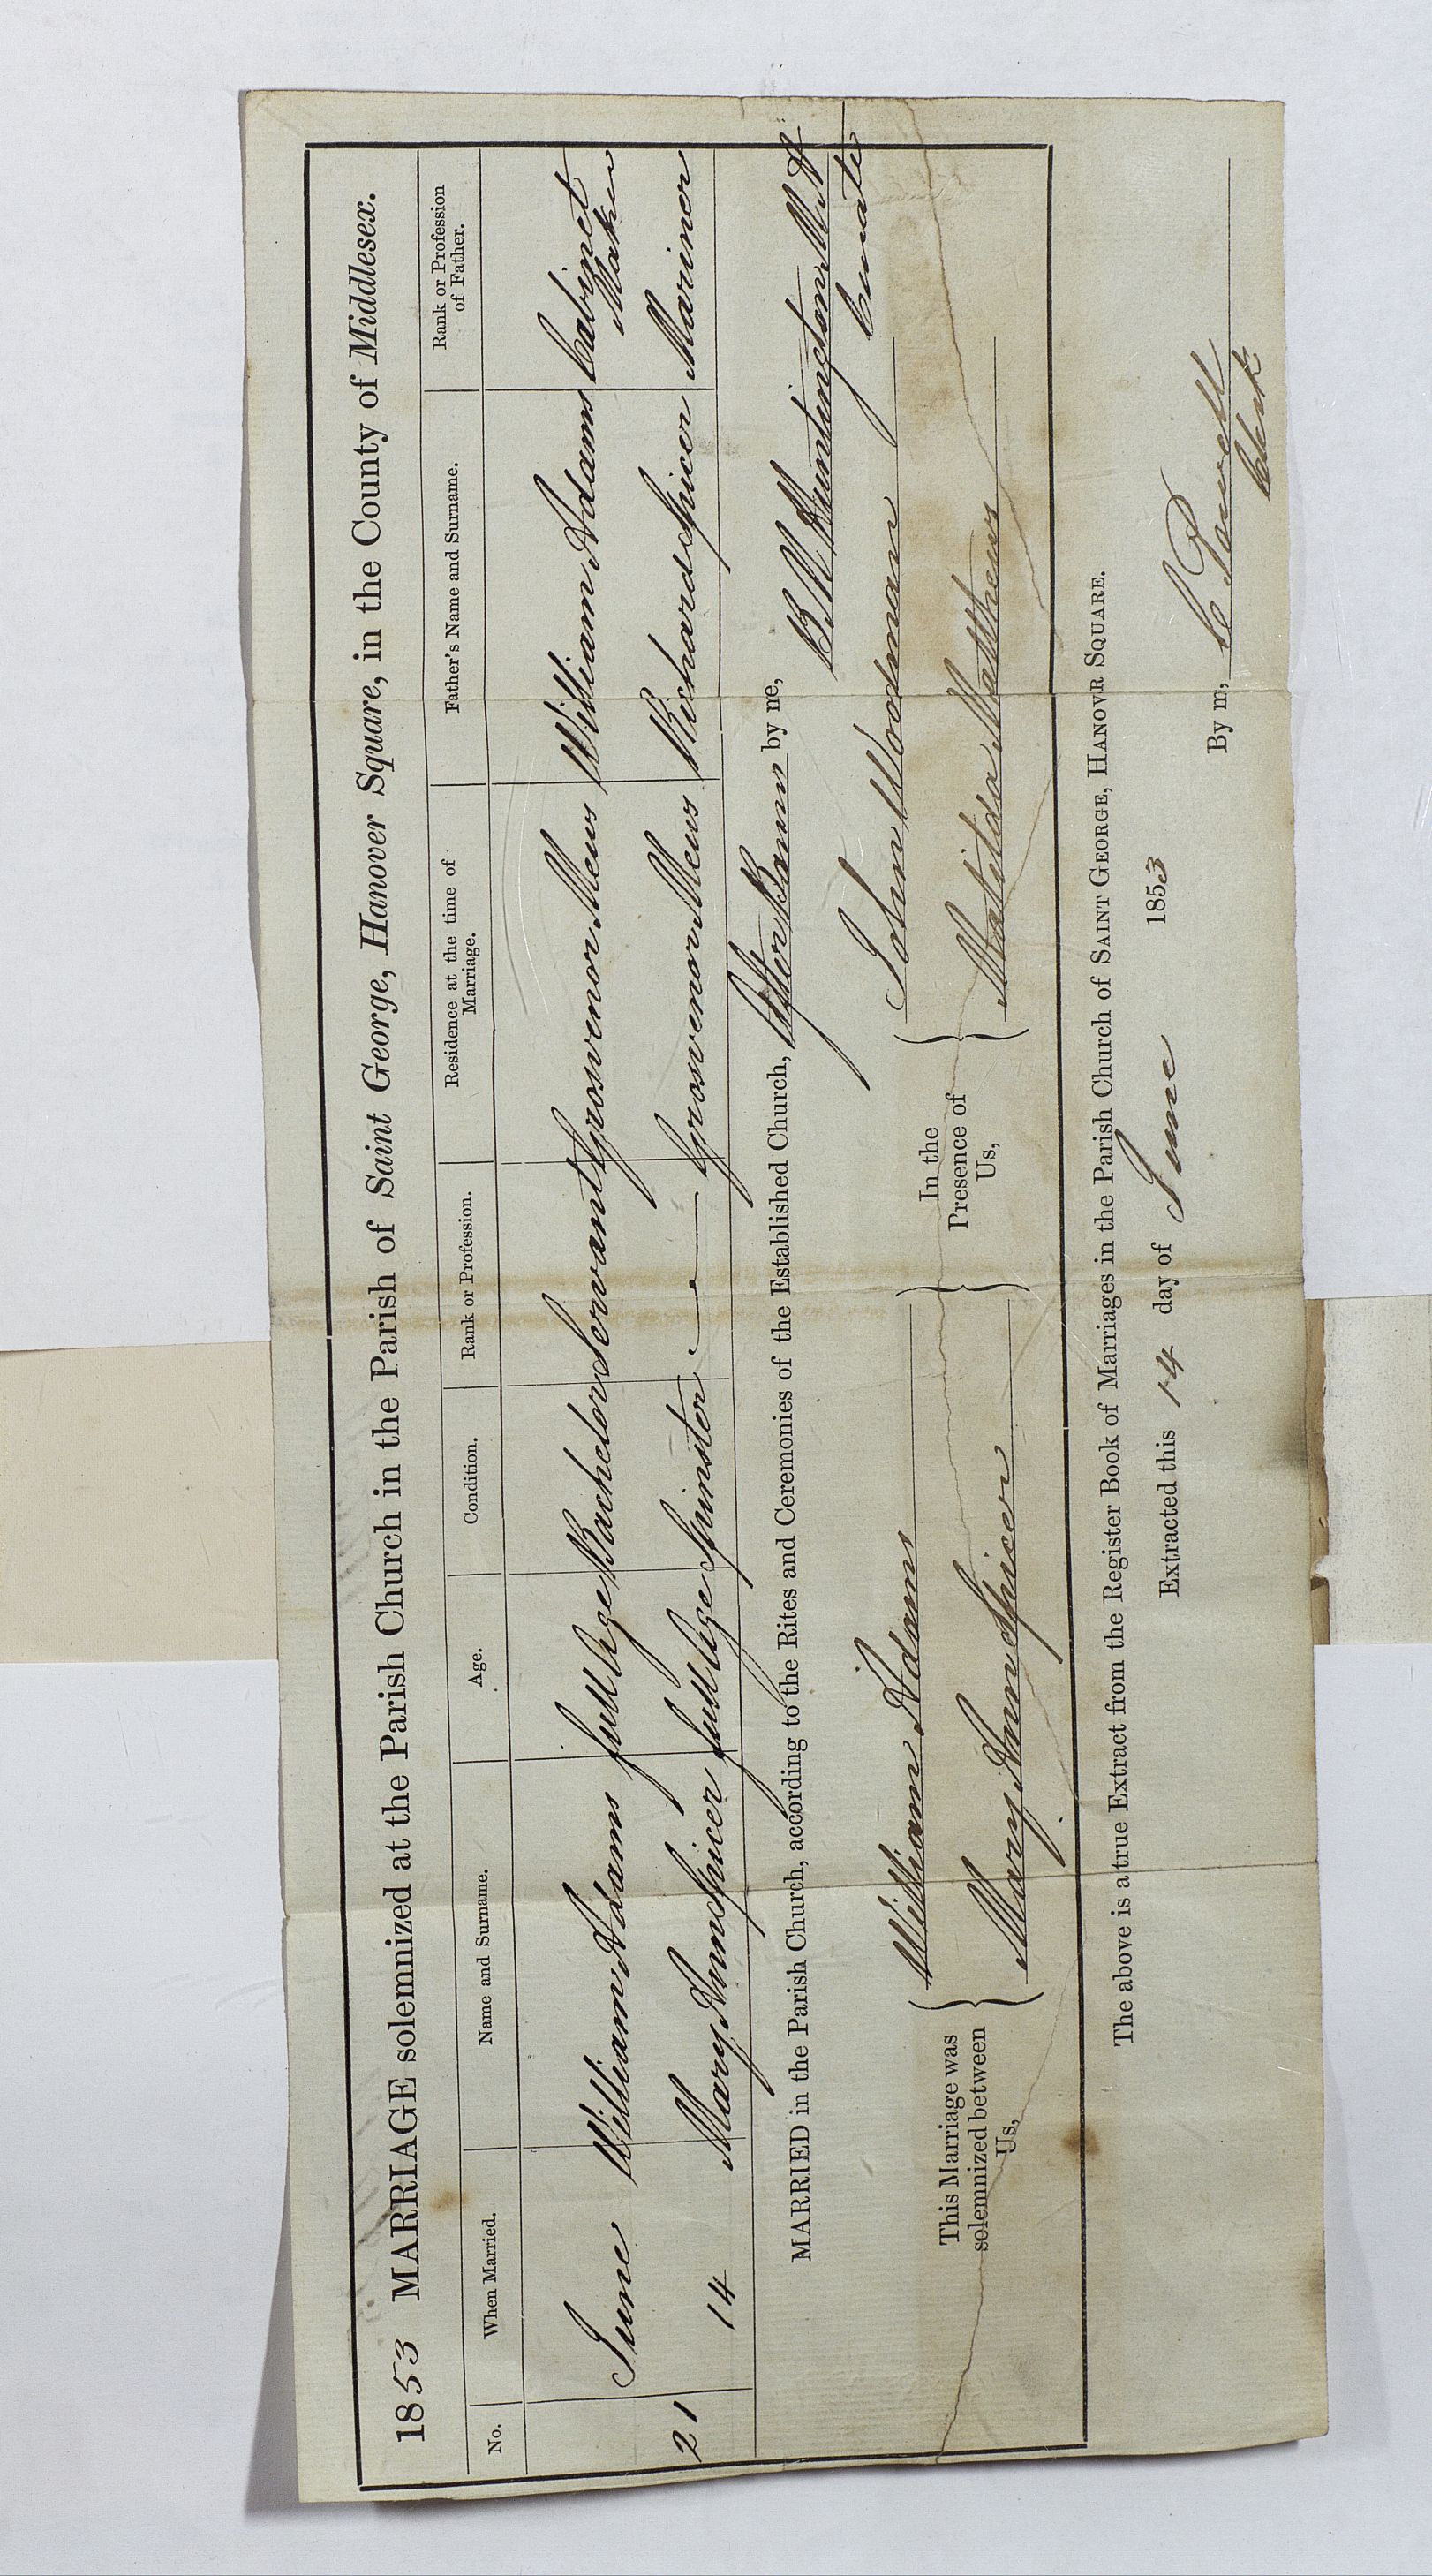 1853 MARRIAGE solemnized at the Parish Church in the Parish of Saint George, Hanover Square, in the County of Middlesex.
No. When Married. Name and Surname. Age. Condition. Rank or Profession. Residence at the time of Marriage. Father's Name and Surname. Rank or Profession of Father.
June William Adams full Age Bachelor Servant Grosvenor Mews William Adams Cabinet Maker
21 14 Mary Ann Spicer full Age Spinster — Grosvenor Mews Richard Spicer Mariner
MARRIED in the Parish Church, according to the Rites and Ceremonies of the Established Church, after Banns by me,
B M Huntington M A
Curate
This Marriage was solemnized between Us,
William Adams
Mary Ann Spicer
In the Presence of Us,
John Woodman
Matilda Matthews
The above is a true Extract from the Register Book of Marriages in the Parish Church of SAINT GEORGE, HANOVR SQUARE.
Extracted this 14 day of June 1853
By m, C Powell
Clerk